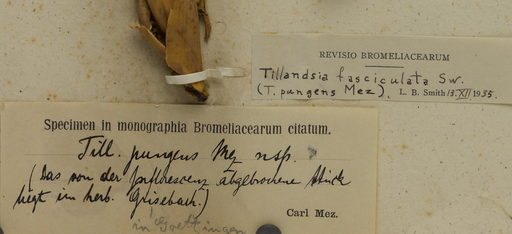 REVISIO BROMELIACEARUM
Tillandsia fasciculata Sw.
(T. pungens Mez). L. B. Smith 13.XII 1935.
Specimen in monographia Bromeliacearum citatum.
Till. pungens Mez nsp.
(Das von der Inflorescenz abgebrochene Stück
liegt im herb. Grisebach.)
Carl Mez.
in Goettingen